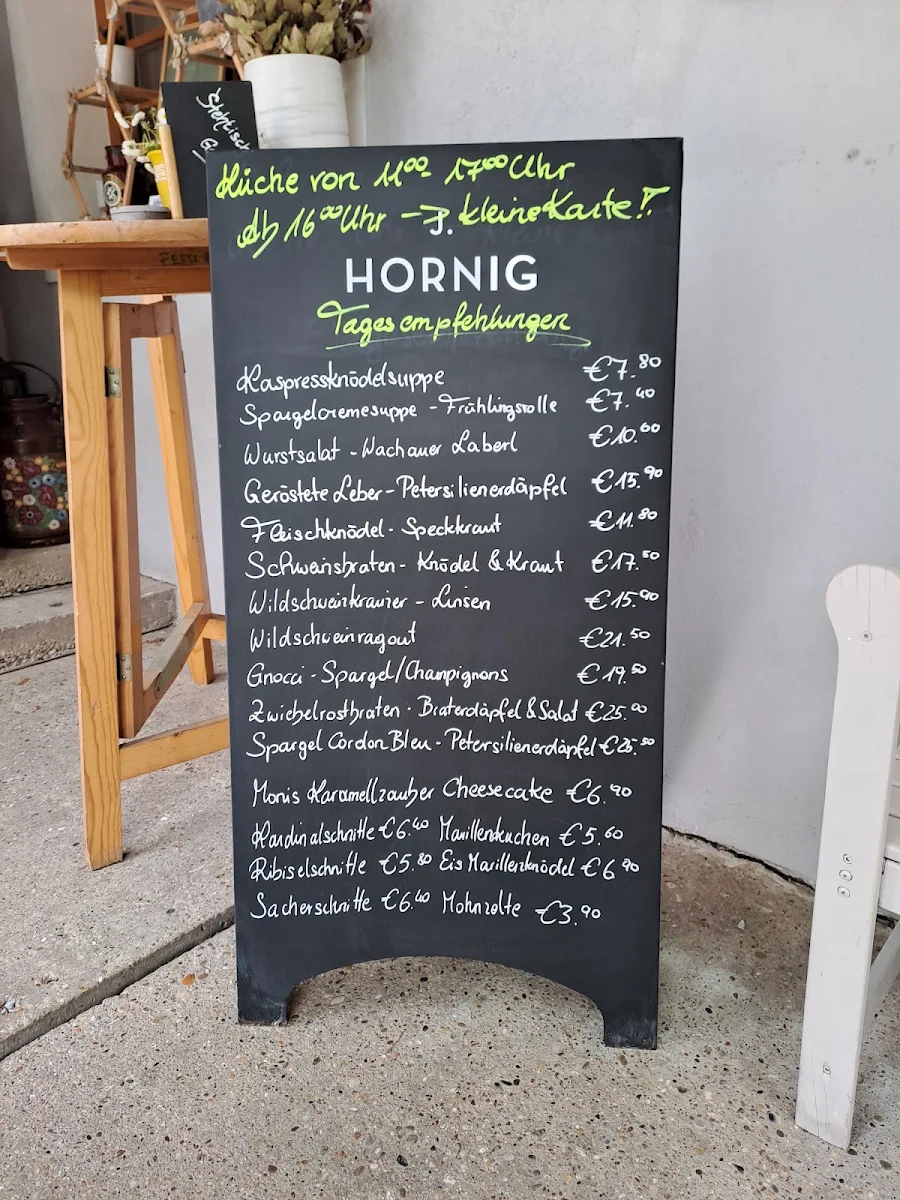 Stehtisch
Küche von 11⁰⁰ 17⁰⁰ Uhr
Ab 16⁰⁰ Uhr → kleine Karte!!
HORNIG
Tagesempfehlungen
Kaspressknödelsuppe €7.⁸⁰
Spargelcremesuppe - Frühlingsrolle €7.⁴⁰
Wurstsalat - Wachauer Laberl €10.⁶⁰
Geröstete Leber - Petersilienerdäpfel €15.⁹⁰
Fleischknödel - Speckkraut €11.⁸⁰
Schweinsbraten - Knödel & Kraut €17.⁵⁰
Wildschweinkravier - Linsen €15.⁹⁰
Wildschweinragout €21.⁵⁰
Gnocci - Spargel/Champignons €19.⁵⁰
Zwiebelrostbraten - Braterdäpfel & Salat €25.⁰⁰
Spargel Cordon Bleu - Petersilienerdäpfel
Monis Karamellzauber Cheesecake €6.⁹⁰
Kardinalschnitte €6.⁴⁰ Marillenkuchen €5.⁶⁰
Ribiselschnitte €5.⁸⁰ Eis Marillenknödel €6.⁹⁰
Sacherschnitte €6.⁴⁰ Mohnzelte €3.⁹⁰